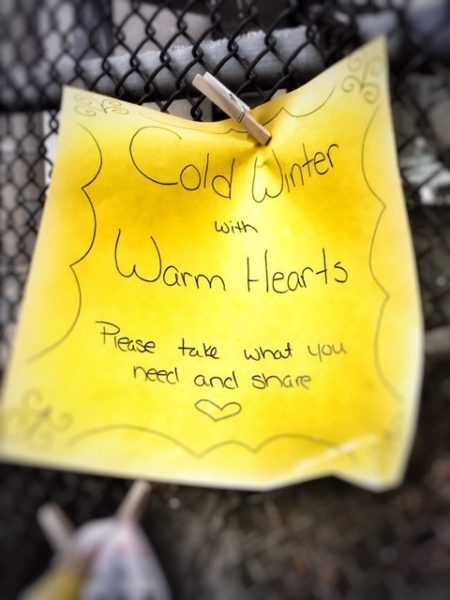 Cold Winter
with
Warm Hearts
Please take what you
need and share